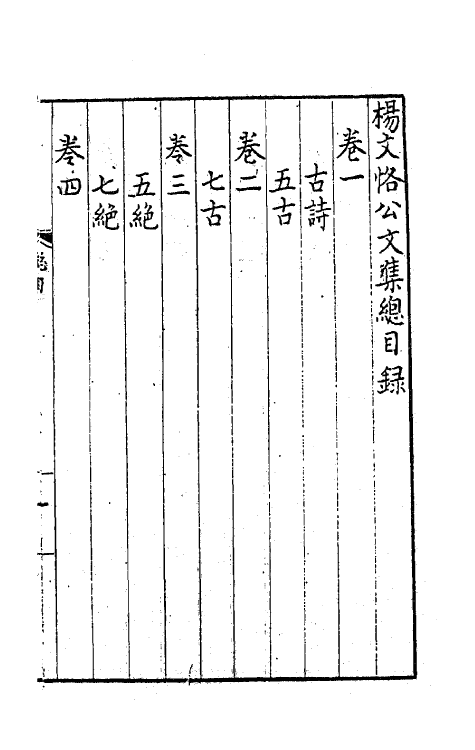 楊文恪公文集總目錄
卷一
古詩
五古
卷二
七古
卷三
五絕
七絕
卷四
總目
一